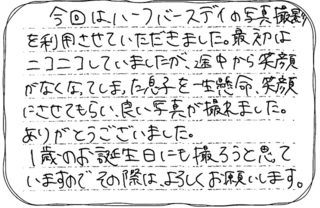 今回はハーフバースデイの写真撮影
を利用させていただきました。最初は
ニコニコしていましたが、途中から笑顔
がなくなってしまった息子を一生懸命、笑顔
にさせてもらい、良い写真が撮れました。
ありがとうございました。
1歳のお誕生日にも撮ろうと思て
いますので その際は、よろしくお願いします。